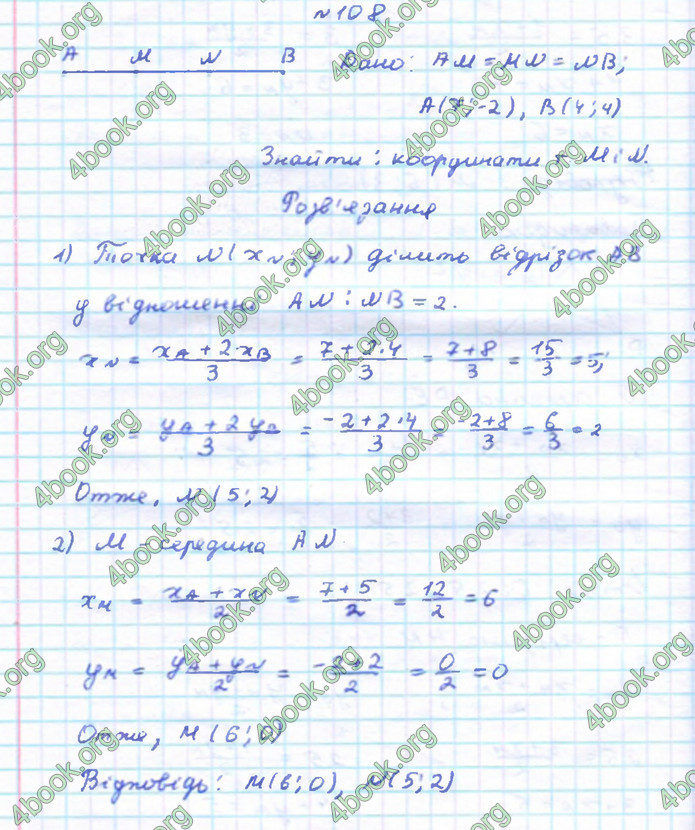 №108
A M N B Дано: AM = MN = NB;
A(7;-2), B(4;4)
Знайти: координати M i N.
Розв'язання
1) Точка N(xN; yN) ділить відрізок AB
у відношенні AN : NB = 2.
xN = (xA + 2·xB)/3 = (7 + 2·4)/3 = (7+8)/3 = 15/3 = 5;
yN = (yA + 2yB)/3 = (-2 + 2·4)/3 = (-2+8)/3 = 6/3 = 2
Отже, N(5;2)
2) M - середина AN.
xM = (xA + xN)/2 = (7+5)/2 = 12/2 = 6
yM = (yA + yN)/2 = (-2+2)/2 = 0/2 = 0
Отже, M(6;0)
Відповідь: M(6;0), N(5;2)
4book.org